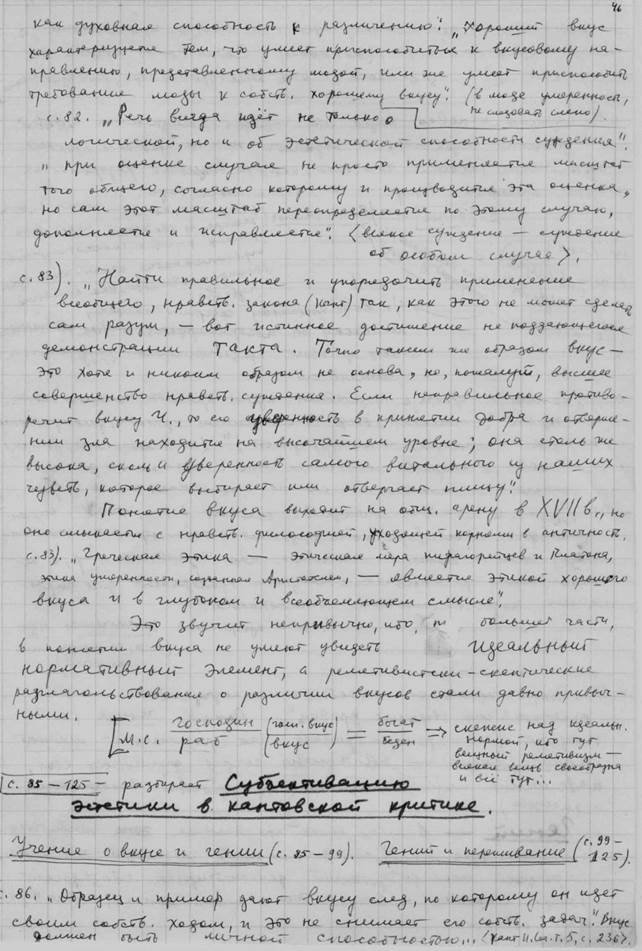 46
как духовная способность к различению". „Хороший вкус
характеризуется тем, что умеет приспособиться к вкусовому на-
правлению, представленному модой, или же умеет приспособить
требование моды к собств. хорошему вкусу". (в моде умеренность,
не следовать слепо)
с. 82. „Речь всегда идёт не только о
логической, но и об эстетической способности суждения".
„при оценке случая не просто применяется масштаб
того общего, согласно которому и производится эта оценка,
но сам этот масштаб переопределяется по этому случаю,
дополняется и исправляется". <всякое суждение — суждение
об особом случае>.
с. 83). „Найти правильное и упорядочить применение
всеобщего, нравств. закона (Кант) так, как этого не может сделать
сам разум, — вот истинное достижение не поддающегося
демонстрации такта. Точно таким же образом вкус —
это хотя и никоим образом не основа, но, пожалуй, высшее
совершенство нравств. суждения. Если неправильное противо-
речит вкусу Ч., то его уверенность в принятии добра и отверже-
нии зла находится на высочайшем уровне; она столь же
высока, сколь и уверенность самого витального из наших
чувств, которое выбирает или отвергает пищу".
Понятие вкуса выходит на общ. арену в XVII в., но
оно смыкается с нравств. философией, уходящей корнями в античность.
с. 83). „Греческая этика — этическая мера пифагорейцев и Платона,
этика умеренности, созданная Аристотелем, — является этикой хорошего
вкуса и в глубоком и всеобъемлющем смысле".
Это звучит непривычно, ибо, по большей части,
в понятии вкуса не умеют увидеть идеальный
нормативный элемент, а релятивистски-скептические
разглагольствования о различии вкусов стали давно привыч-
ными.
[м.с. господин/раб (вкус) = богат/беден ⇒ скепсис над идеальн.
нормой, кто тут
релятивизм —
и всё тут...
с. 85 – 125 – разбирает Субъективацию
эстетики в кантовской критике.
Учение о вкусе и гении (с. 85 – 99). Гений и переживание (с. 99 –
125).
с. 86. „Образец и пример дают вкусу след, по которому он идет
своим собств. ходом, и это не снимает его собств. задач". „Вкус
должен быть личной способностью... (Кант И. Соч. т. 5, с. 236)